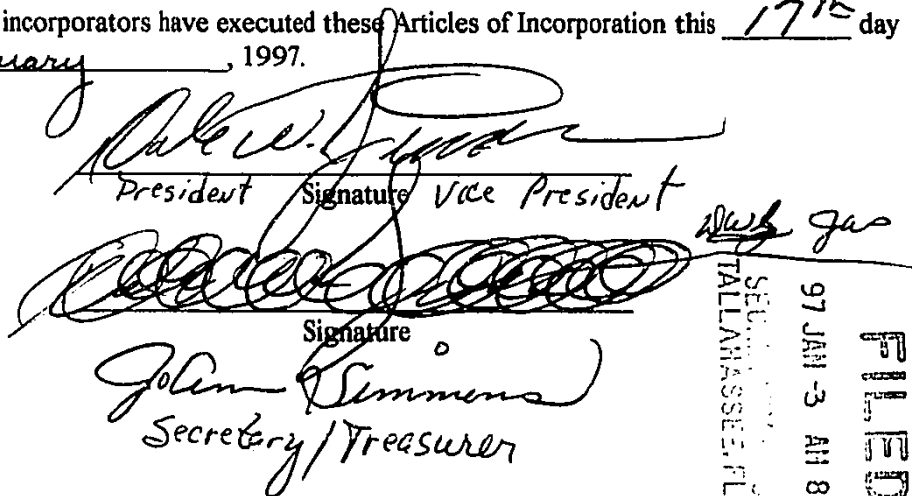 incorporators have executed these Articles of Incorporation this 17th day
uary, 1997.
Dale W.
President Signature Vice President
Signature
JoAnn Simmons
Secretary/Treasurer
jas
FILED
97 JAN -3 AM 8
TALLAHASSEE, FL